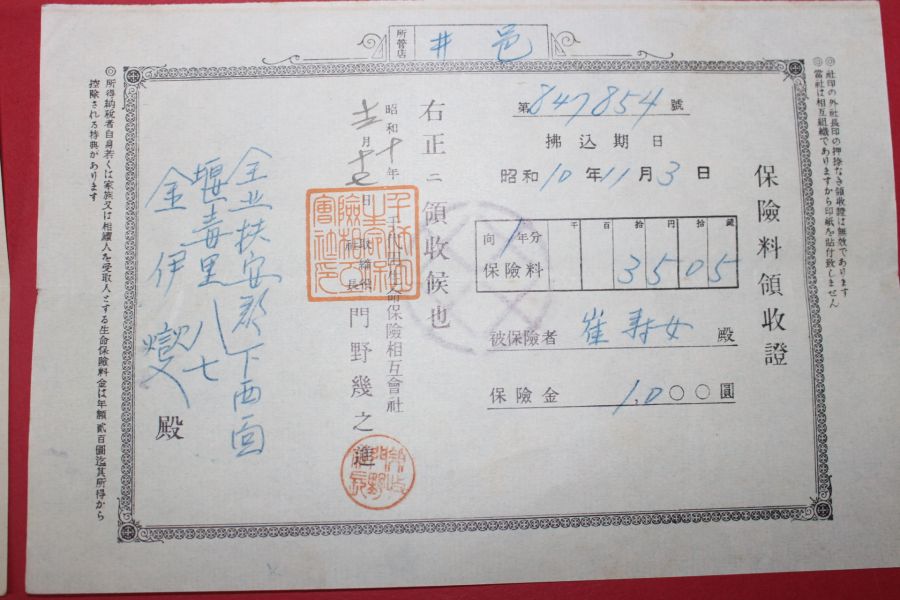 所管店
井邑
◎社印の外社長印の押捺なき領收證は無效であります
◎當社は相互組織でありますから印紙を貼付致しません
保險料領收證
第847854號
拂込期日
昭和10年11月3日
向1年分
保險料
千 百 拾 円 拾 錢
3 5 0 5
被保險者 崔壽女 殿
保險金 1,000圓
右正ニ領收候也
昭和十年
十一月 日
千代田生命保險相互會社
取締役
社長
門野幾之進
全北扶安郡下西面
堰毒里八七
金伊燮
殿
◎所得納稅者自身若くは家族又は相續人を受取人とする生命保險料金は年額貳百圓迄其所得から
控除される特典があります